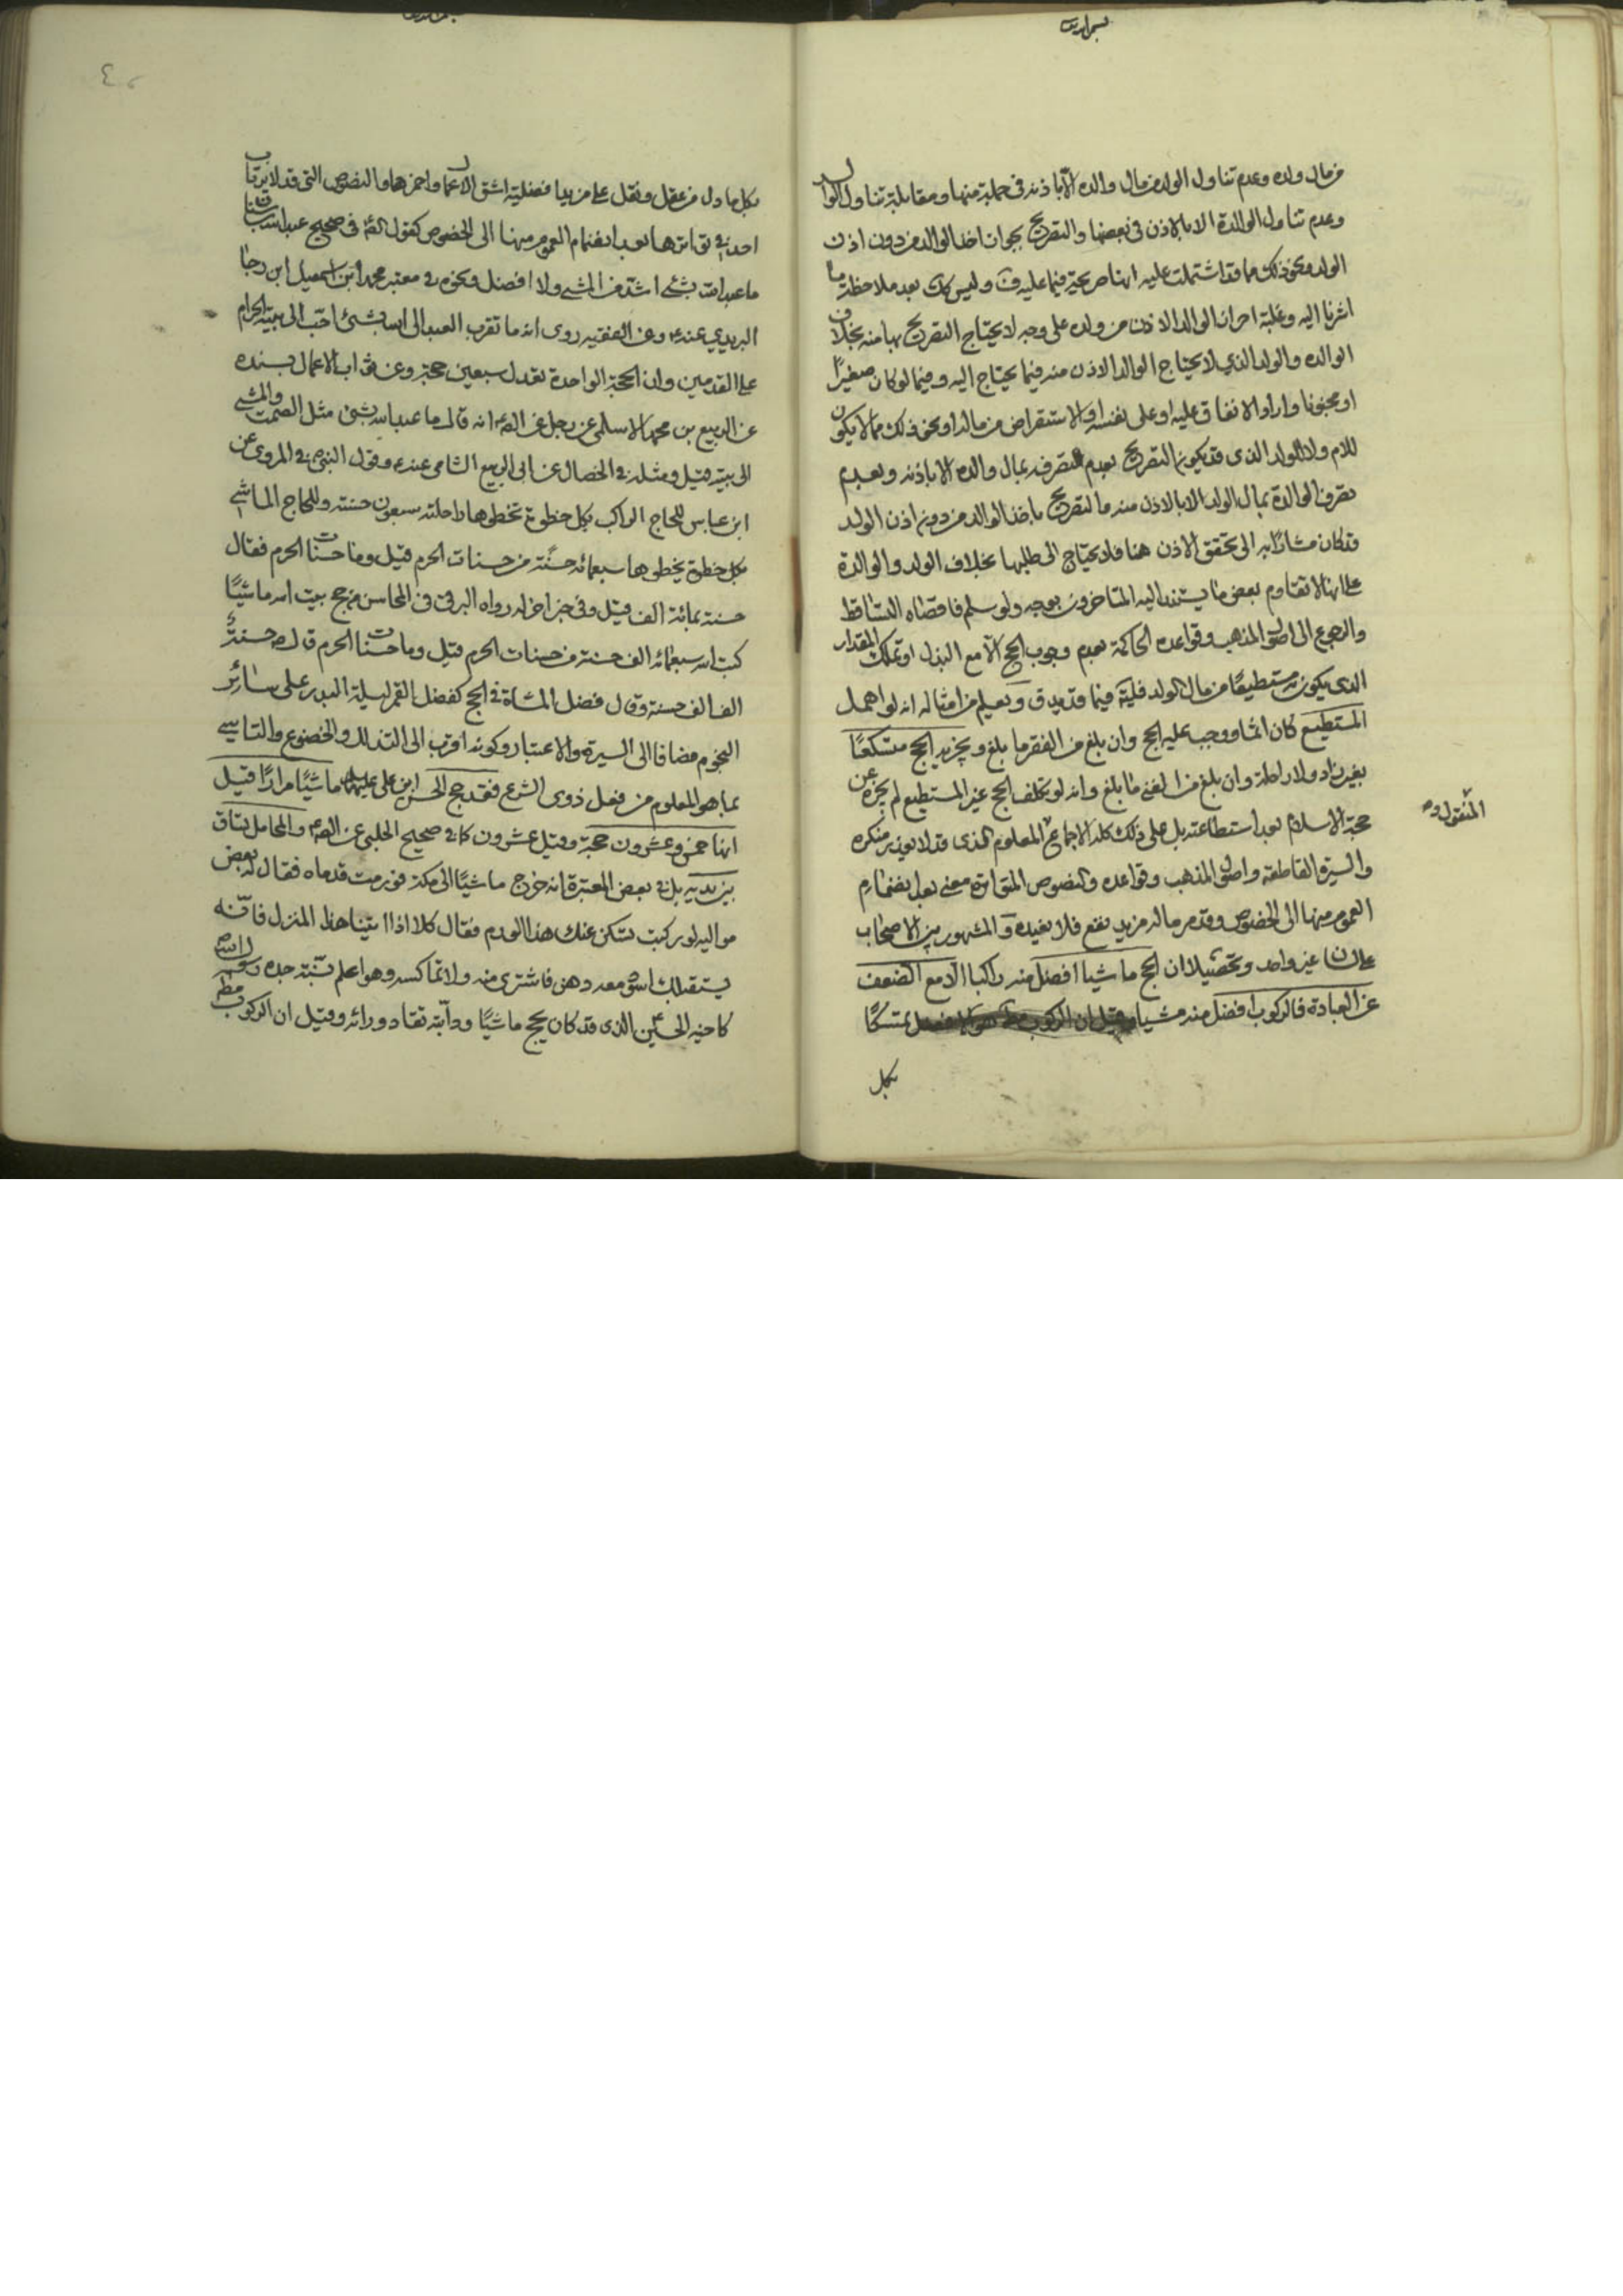 من مال ولده وعدم تناول الولد من مال والده الا باذنه في جملة منها ومقابلة تناول الوالد
وعدم تناول الوالدة الا بالاذن في بعضها والتصريح بجواز اخذ الوالد من دون اذن
الولد ونحو ذلك مما قد اشتملت عليه انها صريحة فيما عليه ق وليس كك بعد ملاحظة ما
اشرنا اليه وغلبة احراز الوالد الاذن من ولده على وجه لا يحتاج التصريح بها منه بخلاف
الوالده والولد الذي لا يحتاج الوالد الاذن منه فيما يحتاج اليه وفيما لو كان صغيرًا
او مجنونا واراد الانفاق عليه او على نفسه او الاستقراض من ماله او نحو ذلك مما لا يكون
للام ولا للولد الذي قد يكون التصريح بعدم تصرفه بمال والده الا باذنه وبعدم
تصرف الوالدة بمال الولد الا بالاذن منه مالتصريح باخذ الوالد من دون اذن الولد
قد كان مشارًا به الى تحقق الاذن هنا فلا يحتاج الى طلبها بخلاف الولد والوالدة
على انها لا تقاوم بعض ما يستند اليه المتاخرون بوجه ولو سلم فاقصاه التساقط
والرجوع الى اصول المذهب وقواعده الحاكمة بعدم وجوب الحج الا مع البذل او تملك المقدار
الذي يكون به مستطيعًا من مال الولد فليته فيما قد يدق ويعلم من امثاله انه لو اهمل
المستطيع كان اثما ووجب عليه الحج وان بلغ من الفقر ما بلغ ويجزيه الحج متسكعًا
بغير زاد ولا راحلة وان بلغ من الغنى ما بلغ وانه لو تكلف الحج غير المستطيع لم يجزه عن
حجة الاسلام بعد استطاعته بل على ذلك كله الاجماع المعلوم الذي قد لا يعذر منكره
المنقول و
والسيرة القاطعة واصول المذهب وقواعده والنصوص المتواترة معنى بعد انضمام
العموم منها الى الخصوص وقد مر ماله مزيد نفع فلا نعيده و المشهور بين الاصحاب
على لسان غير واحد وتحصيلا ان الحج ماشيا افضل منه راكبا الا مع الضعف
عن العبادة فالركوب افضل منه مشيا تمسكًا
بكل
بكل ما دل من عقل ونقل على مزيد افضلية اشق الاعمال واحمزها والنصوص التي قد لا يرتاب
احد في تواترها بعد انضمام العموم منها الى الخصوص كقول الصم في صحيح عبد الله بن سنان
ما عبد الله بشئ اشد من المشي ولا افضل ونحوه في معتبر محمد ابن اسمعيل ابن رجا
الزبيدي عنه ع وعن الفقيه روى انه ما تقرب العبد الى الله بشئ احب الى بيته الحرام
على القدمين وان الحجة الواحدة تعدل سبعين حجة وعن ثواب الاعمال بسنده
عن الربيع بن محمد الاسلمي عن رجل عن الصم انه قال ما عبد الله بشئ مثل الصمت والمشي
الى بيته قيل ومثله في الخصال عن ابى الربيع الشامي عنه ع وقول النبي ص في المروي عن
ابن عباس للحاج الراكب بكل خطوة تخطوها راحلته سبعون حسنة وللحاج الماشي
بكل خطوة يخطوها سبعمائه حسنة من حسنات الحرم قيل وما حسنات الحرم فقال
حسنة بمائة الف قيل وفي خبر اخر له رواه البرقي في المحاسن من حج بيت الله ماشيًا
كتب الله سبعمائه الف حسنة من حسنات الحرم قيل وما حسنات الحرم قال ص حسنة
الف الف حسنة وقال فضل المشاة في الحج كفضل القمر ليلة البدر على سائر
النجوم مضافا الى السيرة والاعتبار وكونه اقرب الى التذلل والخضوع والتاسي
بما هو المعلوم من فعل ذوي الشرع فقد حج الحسن ابن علي عليهما ماشيًا مرارًا قيل
انها خمس وعشرون حجة وقيل عشرون كما في صحيح الحلبي عن الصم والمحامل تساق
بين يديه بل في بعض المعتبرة انه خرج ماشيًا الى مكة فورمت قدماه فقال له بعض
مواليه لو ركبت لسكن عنك هذا الورم فقال كلا اذا اتينا هذا المنزل فانه
يستقبلك اسود معه دهن فاشتري منه ولا تماكسه وهو اعلم بسنة جده رسول الله ص
كاخيه الحسين ع الذي قد كان يحج ماشيًا ودابته تقاد ورائه وقيل ان الركوب مط